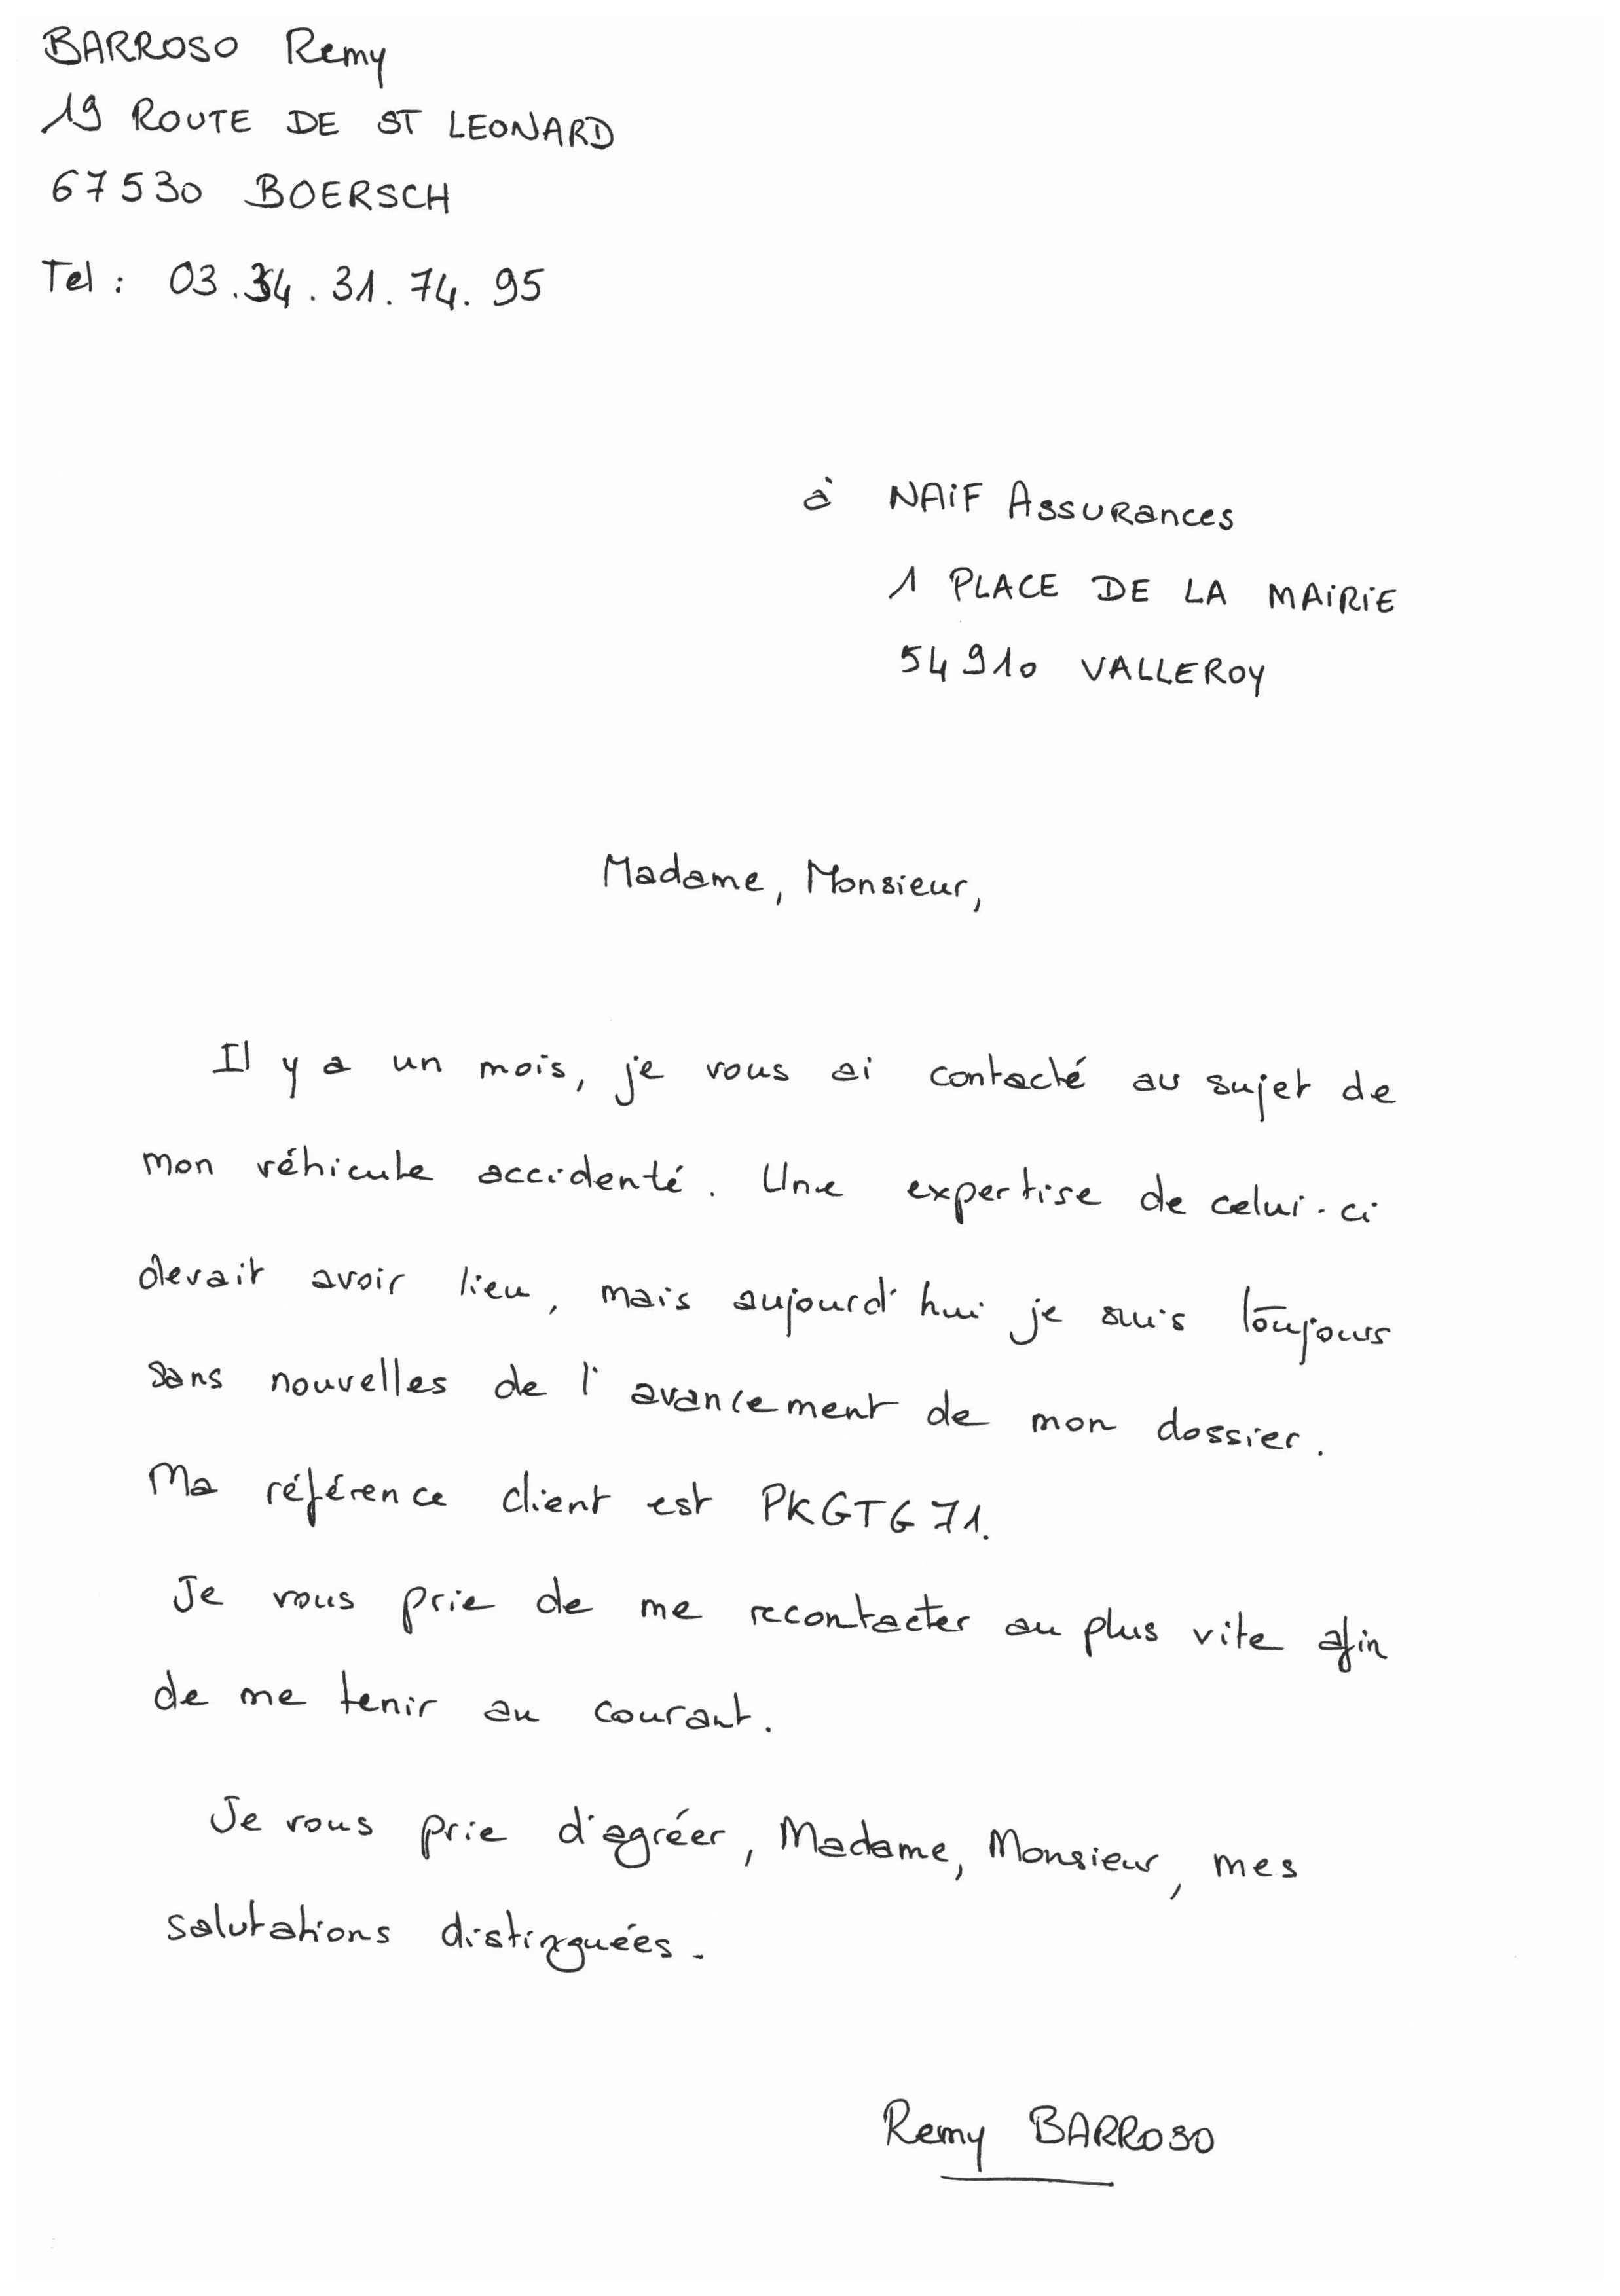 BARROSO Remy
19 ROUTE DE ST LEONARD
67530 BOERSCH
Tel : 03.34.31.74.95
à NAiF Assurances
1 PLACE DE LA MAiRiE
54910 VALLEROY
Madame, Monsieur,
Il y a un mois, je vous ai contacté au sujet de
mon véhicule accidenté. Une expertise de celui-ci
devait avoir lieu, mais aujourd'hui je suis toujours
sans nouvelles de l'avancement de mon dossier.
Ma référence client est PKGTG71.
Je vous prie de me recontacter au plus vite afin
de me tenir au courant.
Je vous prie d'agréer, Madame, Monsieur, mes
salutations distinguées.
Remy BARROSO